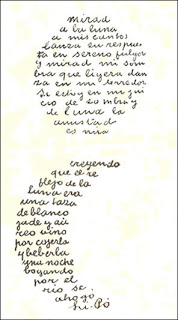 mirad
a la luna
a mis cantos
lanza en respues
ta en sereno fulgor
y mirad mi som
bra que ligera dan
za en mi derredor
si estoy en mi jui
cio de sombra y
de luna la
amistad
es mia
creyendo
que el re
flejo de la
luna era
una taza
de blanco
jade y aú
reo vino
por cojerla
y beberla
una noche
bogando
por el
rio se
ahogó
Li-Pó